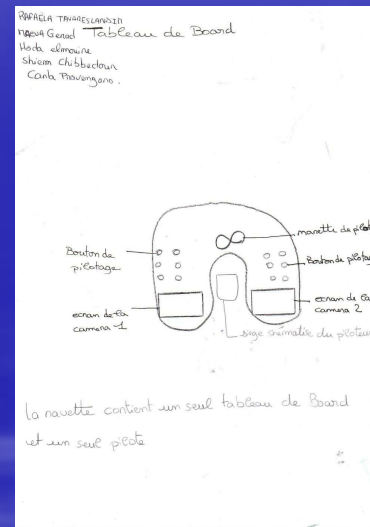 RAFAELA TAVARESLANDIN
MAEVA Genod Tableau de Board
Hoda elmouine
Shiem Chibbedoun
Carla Provengano.
manette de pilot
Bouton de pilotage
Bouton de pilotag
ecran de la camera 1
ecran de la camera 2
siege shématisé du piloteur
la navette contient un seul tableau de Board
et un seul pilote